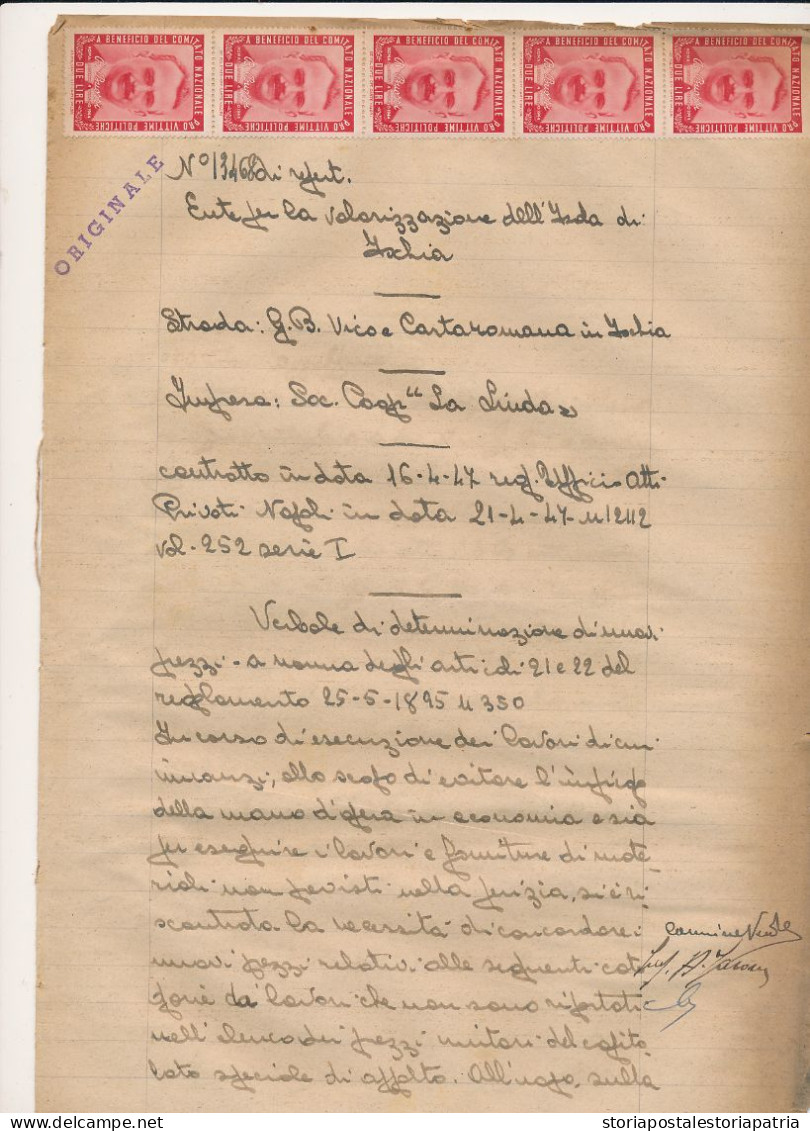 A BENEFICIO DEL COMITATO NAZIONALE PRO VITTIME POLITICHE DUE LIRE
A BENEFICIO DEL COMITATO NAZIONALE PRO VITTIME POLITICHE DUE LIRE
A BENEFICIO DEL COMITATO NAZIONALE PRO VITTIME POLITICHE DUE LIRE
A BENEFICIO DEL COMITATO NAZIONALE PRO VITTIME POLITICHE DUE LIRE
A BENEFICIO DEL COMITATO NAZIONALE PRO VITTIME POLITICHE DUE LIRE
ORIGINALE
N° 13468 di repert.
Ente per la valorizzazione dell'Isola di
Ischia
Strada: G.B. Vico e Cartaromana in Ischia
Impresa: Soc. Coop "La
contratto in data 16-4-47 reg. Ufficio Atti
Privati Napoli in data 21-4-47 n 12112
vol. 252 serie I
Verbale di determinazione di nuovi
prezzi - a norma degli articoli 21 e 22 del
reglamento 25-5-1895 n 350
In corso di esecuzione dei lavori di cui
innanzi, allo scopo di evitare l'impiego
della mano d'opera in economia e sia
per eseguire i lavori e forniture di mate
riali non previsti nella perizia, si è ri
scontrata la necessità di concordare i
nuovi prezzi relativi alle seguenti cate
gorie da lavori che non sono riportati
nell'elenco dei prezzi unitari del capito
lato speciale di appalto. All'uopo, sulla
Carmine
Ing. A.
storiapostalestoriapatria